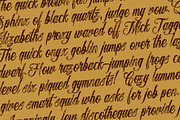 The quick brown fox jumps over
Sphinx of black quartz, judge my vow.
Elizabeths proxy waves off Mick Tagge
The quick onyx goblin jumps over the l
dwarf. How razorback-jumping frogs c
level six piqued gymnasts! Cozy lummo
gives smart squid who asks for job pen.
Amazingly few discotheques provide